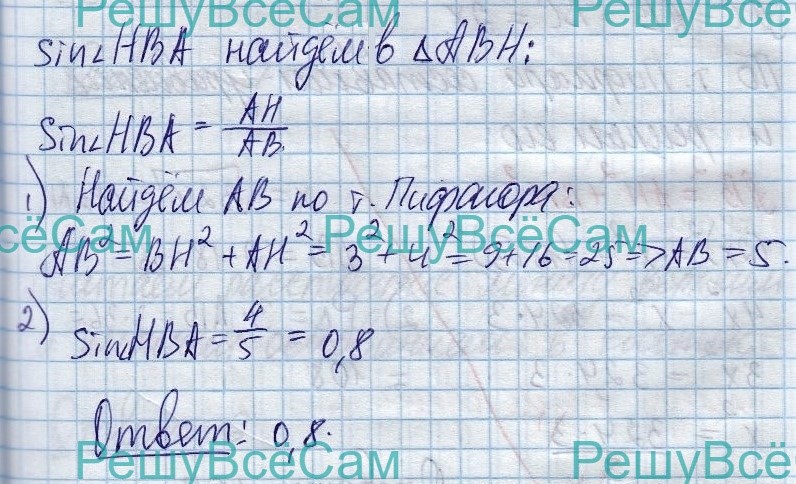 РешуВсёСам РешуВсё
sin∠HBA найдём в △ABH:
sin∠HBA = AH/AB.
1) Найдём AB по т. Пифагора:
сёСам РешуВсёСам
AB² = BH² + AH² = 3² + 4² = 9+16=25 => AB = 5.
2) sin∠HBA = 4/5 = 0,8
Ответ: 0,8.
РешуВсёСам РешуВсё